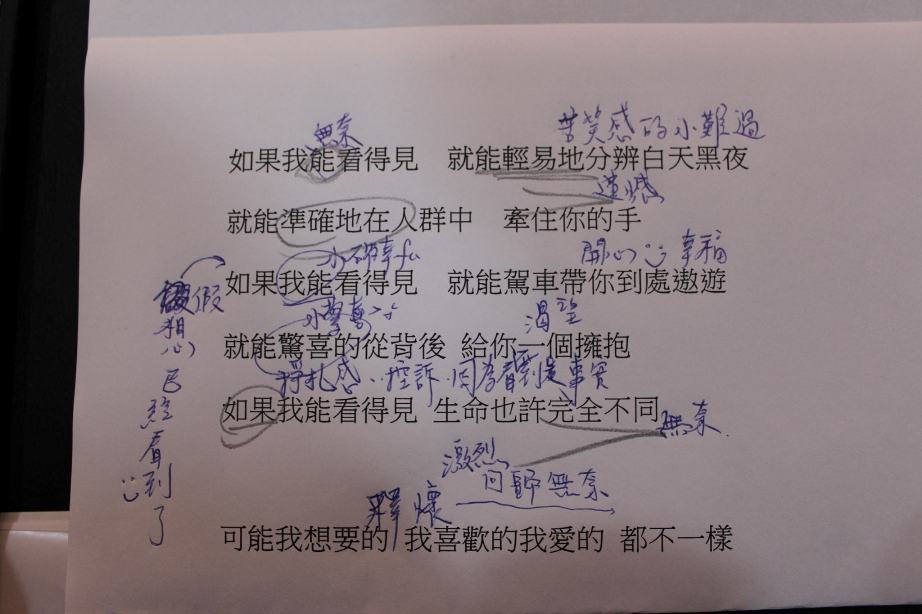 無奈 苦笑感的小難過
如果我能看得見 就能輕易地分辨白天黑夜
遺憾
就能準確地在人群中 牽住你的手
開心 幸福
如果我能看得見 就能駕車帶你到處遨遊
假想已經看到了
小驚喜 渴望
就能驚喜的從背後 給你一個擁抱
掙扎感 控訴 因為看到是事實
如果我能看得見 生命也許完全不同
無奈
激烈
回歸無奈
釋懷
可能我想要的 我喜歡的我愛的 都不一樣